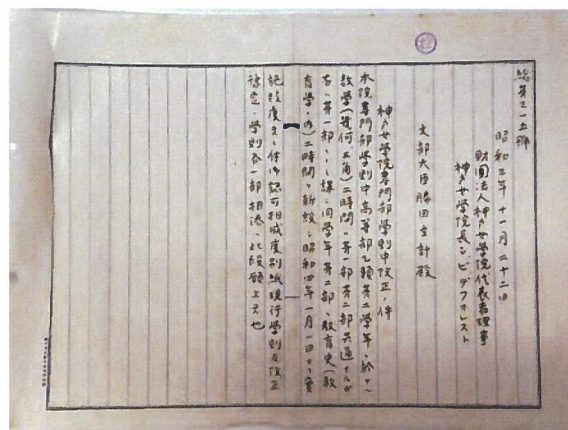 総第三一五號
昭和三年十一月二十二日
財團法人神戸女学院代表者理事
神戸女学院長シ、ビ、デフォレスト
文部大臣勝田主計殿
神戸女学院専門部学則中改正ノ件
本院専門部学則中高等部乙類第二学年ニ於ケル
数学(幾何、三角)二時間ハ第一部第二部共通ナルガ
右ハ第一部ノミニ課シ同学年第二部ニ教育史(教
育学ノ内)二時間ヲ新設シ昭和四年一月一日ヨリ実
施致度候ニ付御認可相成度別紙現行学則及改正
学則各一部相添ヘ此段願上候也